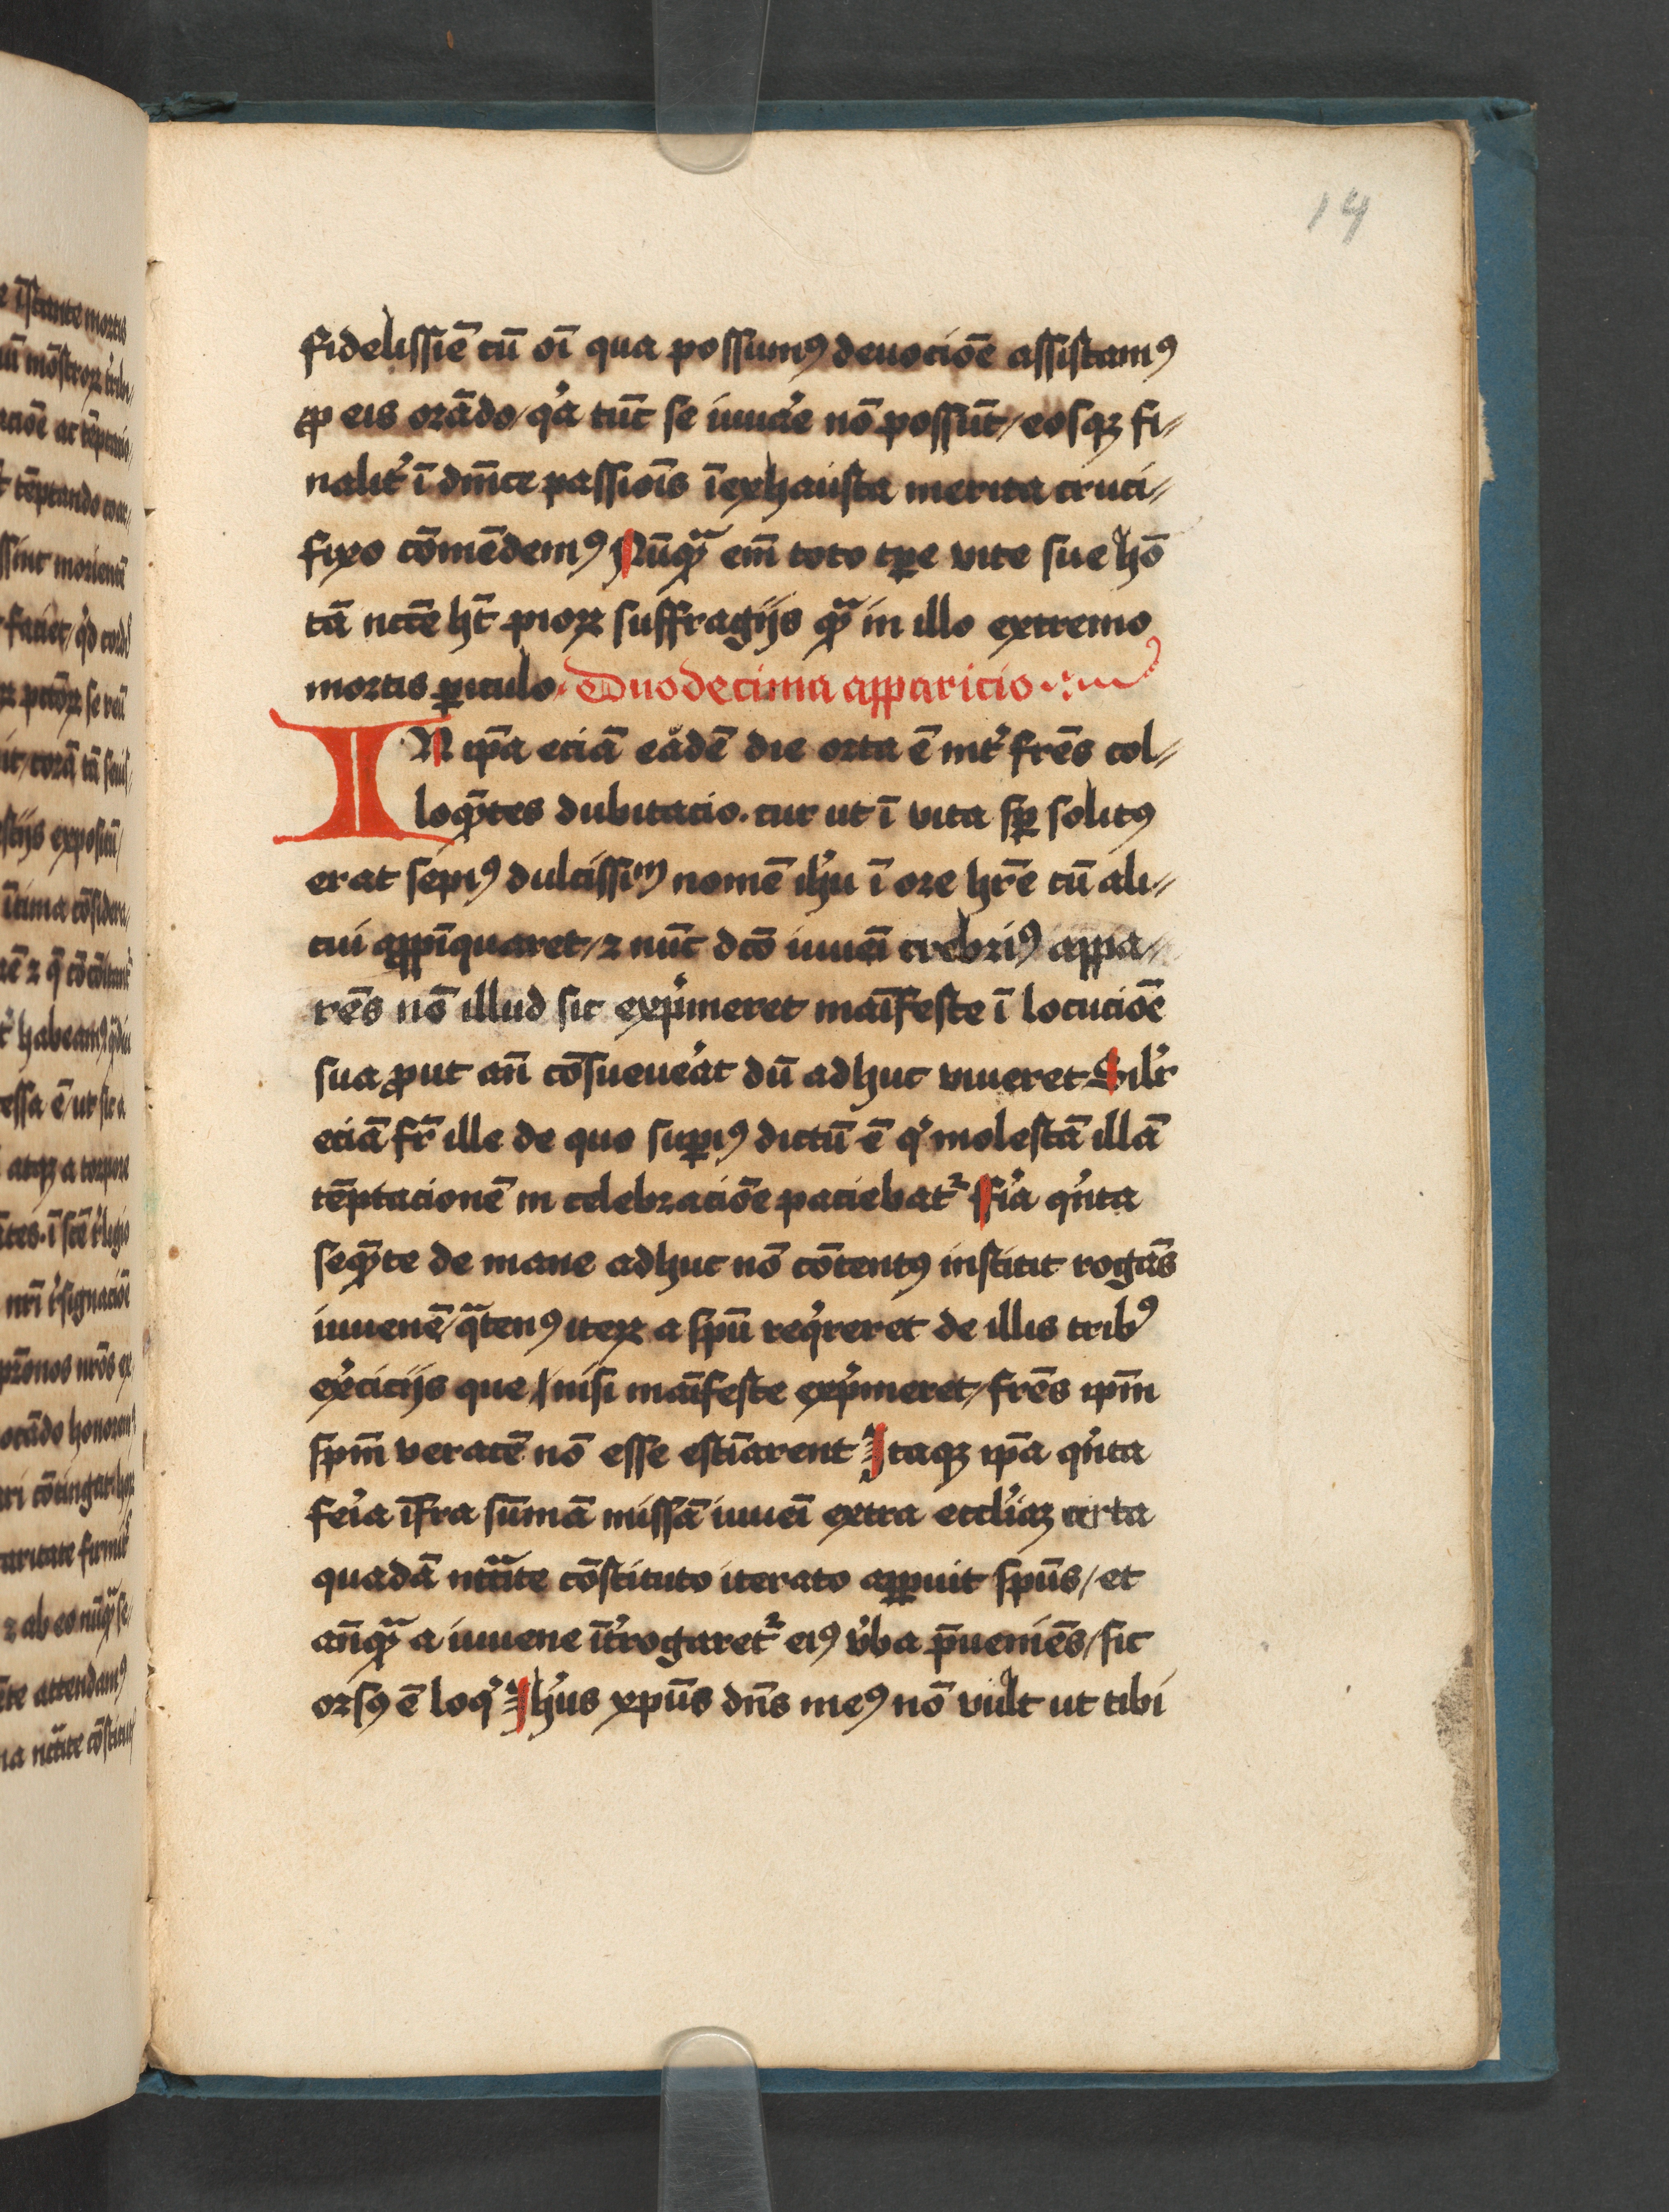 14
fidelissiē cū oī qua possumꝰ deuociōe assistamꝰ
ꝓ eis orādo / qͥa tūc se iuuāe nō possūt / eosqꝫ fi⸗
nalit᷑ ī dn̄ice passiōis īexhausta merita cruci⸗
fixo cōmēdemꝰ Nūqᷓ em̄ toto tꝑe vite sue hō
tā nccē hꝫ pioꝝ suffragijs qᷓ in illo extremo
mortis ꝑiculo. Duodecima apparicio
IN ip̄a eciā eādē die orta ē int᷑ frēs col⸗
loqn̄tes dubitacio. cur ut ī vita sꝑ solitꝰ
erat sepiꝰ dulcissimū nomē ihu ī ore hr̄e cū ali⸗
cui appīquaret / ⁊ nūc dc̄o iuueī crebriꝰ appa⸗
rēs nō illud sic exp͛meret maīfeste ī locuciōe
sua ꝓut an̄ cōsueue᷑at dū adhuc viueret Sil᷑r
eciā fr̄ ille de quo suꝑiꝰ dictū ē qͥ molestā illā
tēptacionē in celebraciōe paciebat᷑ fīa qͥnta
seqn̄te de mane adhuc nō cōtentꝰ institit rogās
iuuenē / qᷓtenꝰ iteꝝ a sp̄u reqͥreret de illis tribꝰ
exe᷑cicijs que / nisi maīfeste expͥmeret / frēs ip̄m
sp̄m veracē nō esse estīarent Itaqꝫ ip̄a qͥnta
fe᷑ia īfra sūmā missā iuueī extra eccl̄iaꝫ certa
quadā nc̄cītate cōstituto iterato apparuit sp̄us / et
an̄qᷓ a iuuene īt᷑rogaret᷑ eiꝰ v᷑ba p̄ueniēs / sic
orsꝰ ē loqͥ Ih̄us xp̄us dn̄s meꝰ nō vult ut tibi